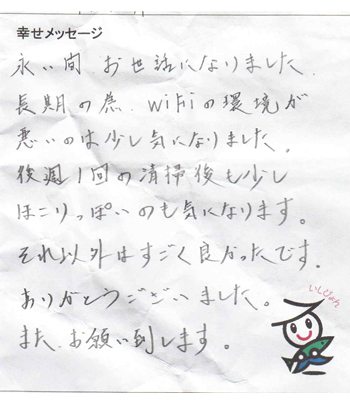 幸せメッセージ
永い間、お世話になりました、
長期の為、wifiの環境が
悪いのは少し気になりました、
後週1回の清掃後も少し
ほこりっぽいのも気になります。
それ以外はすごく良かったです、
ありがとうございました。
また、お願い到します。